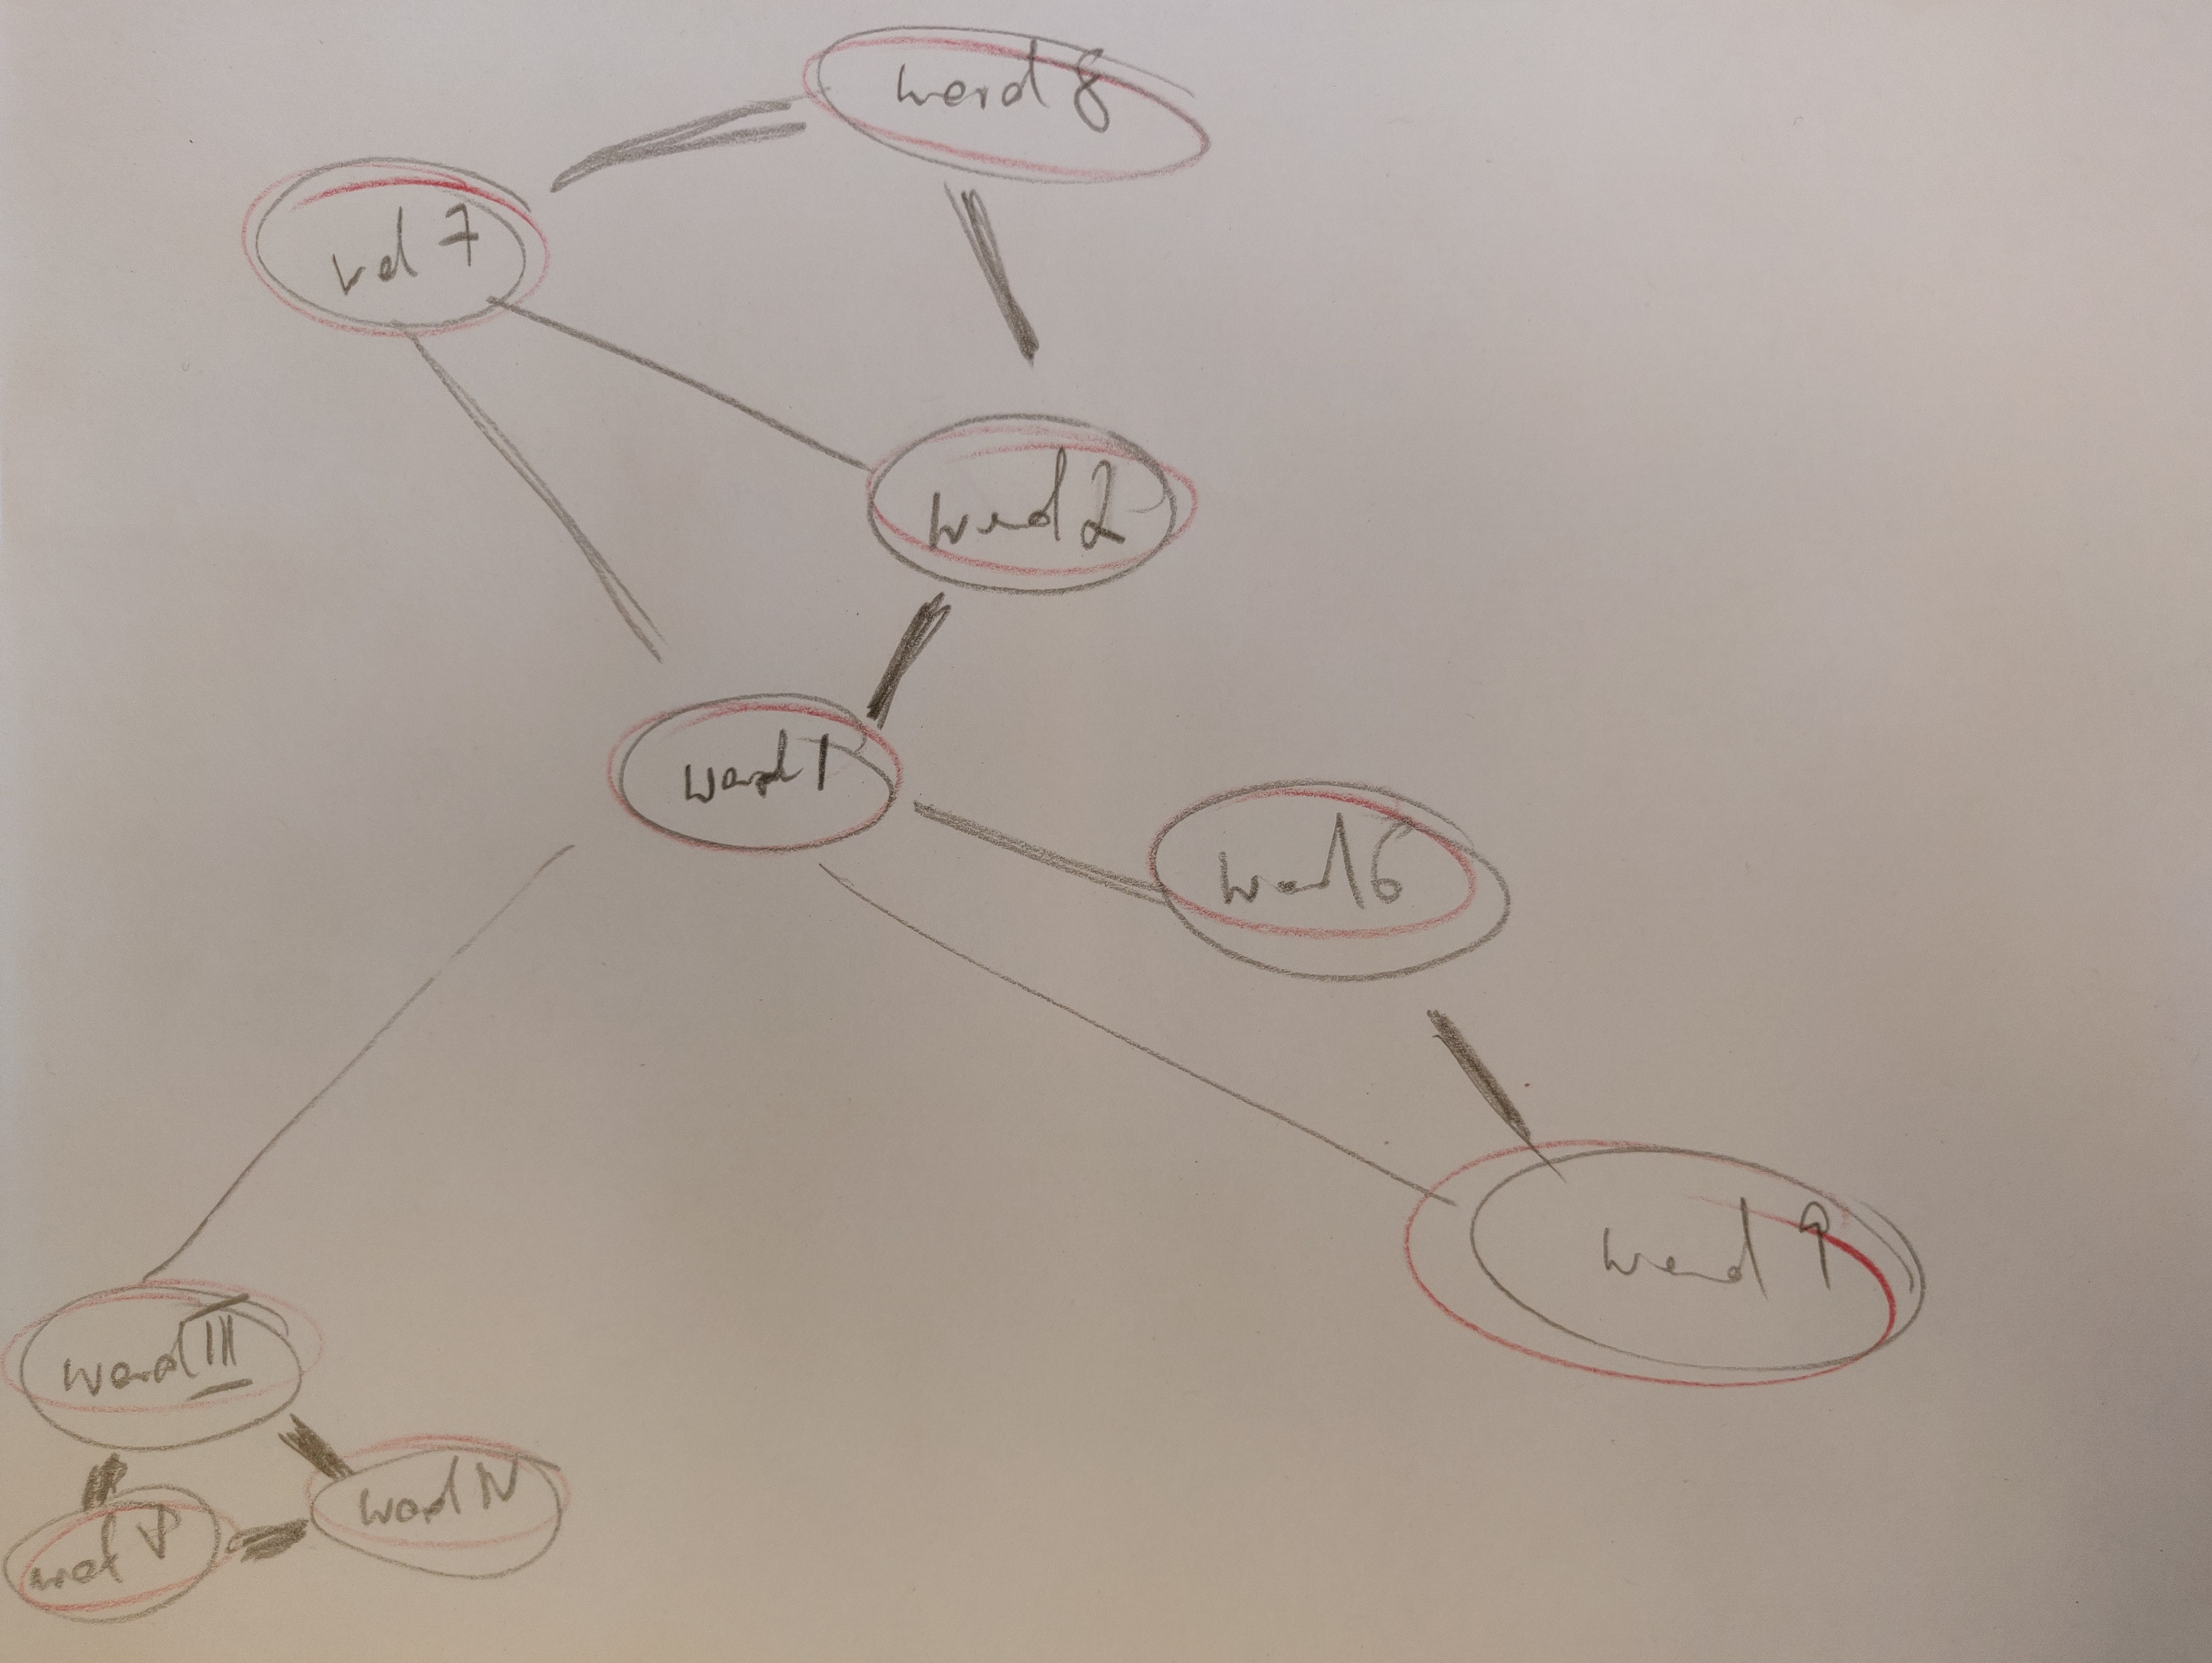 word 8
wd 7
word 2
word 1
word 6
word 9
word III
word IV
word V